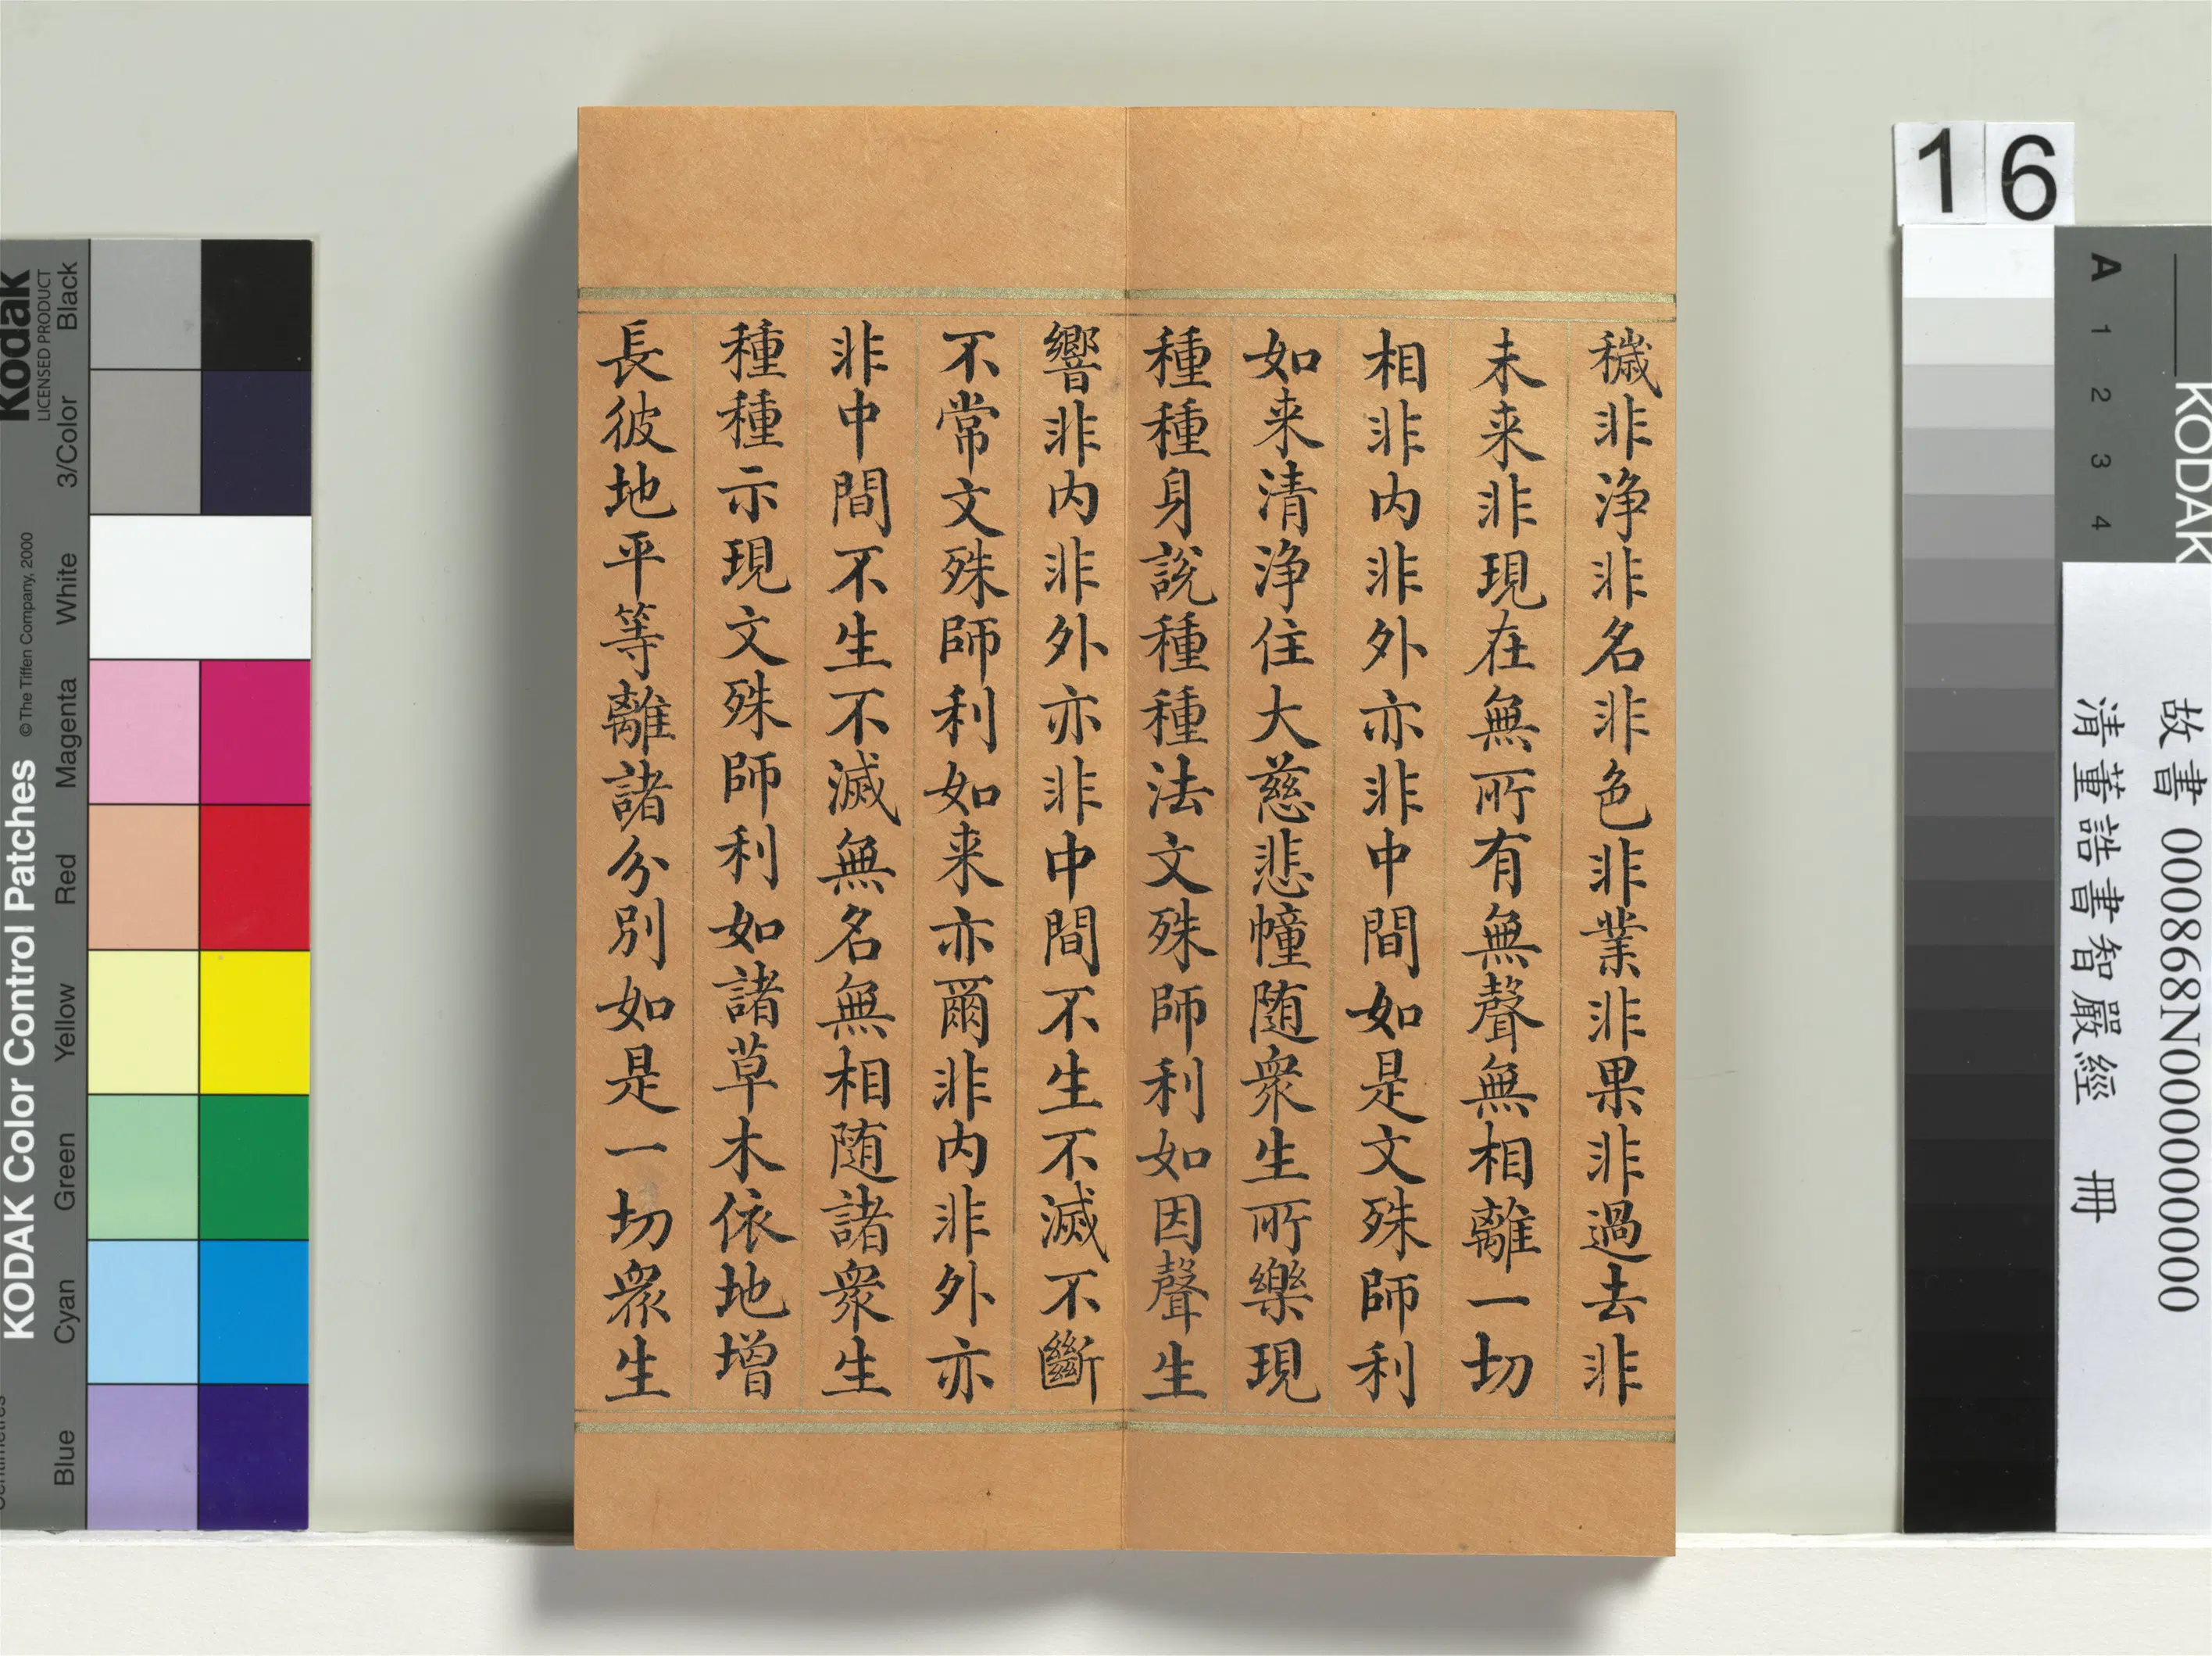 穢非浄非名非色非業非果非過去非
未来非現在無所有無聲無相離一切
相非内非外亦非中間如是文殊師利
如来清浄住大慈悲幢随衆生所樂現
種種身說種種法文殊師利如因聲生
響非内非外亦非中間不生不滅不斷
不常文殊師利如来亦爾非内非外亦
非中間不生不滅無名無相随諸衆生
種種示現文殊師利如諸草木依地增
長彼地平等離諸分別如是一切衆生
16
KODAK
A 1 2 3 4
故書 000868N000000000
清董誥書智嚴經 冊
Kodak
LICENSED PRODUCT
KODAK Color Control Patches
© The Tiffen Company, 2000
Blue Cyan Green Yellow Red Magenta White 3/Color Black